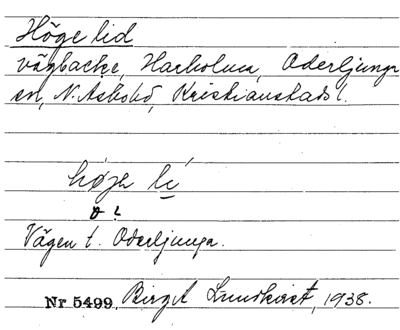 Höge lid
vägbacke, Harholma, Oderljunga
sn, N. Åsbohd, Kristianstads l.
höjə lí
ə ?
Vägen t. Oderljunga.
Nr 5499, Birgit Lundkvist, 1938.